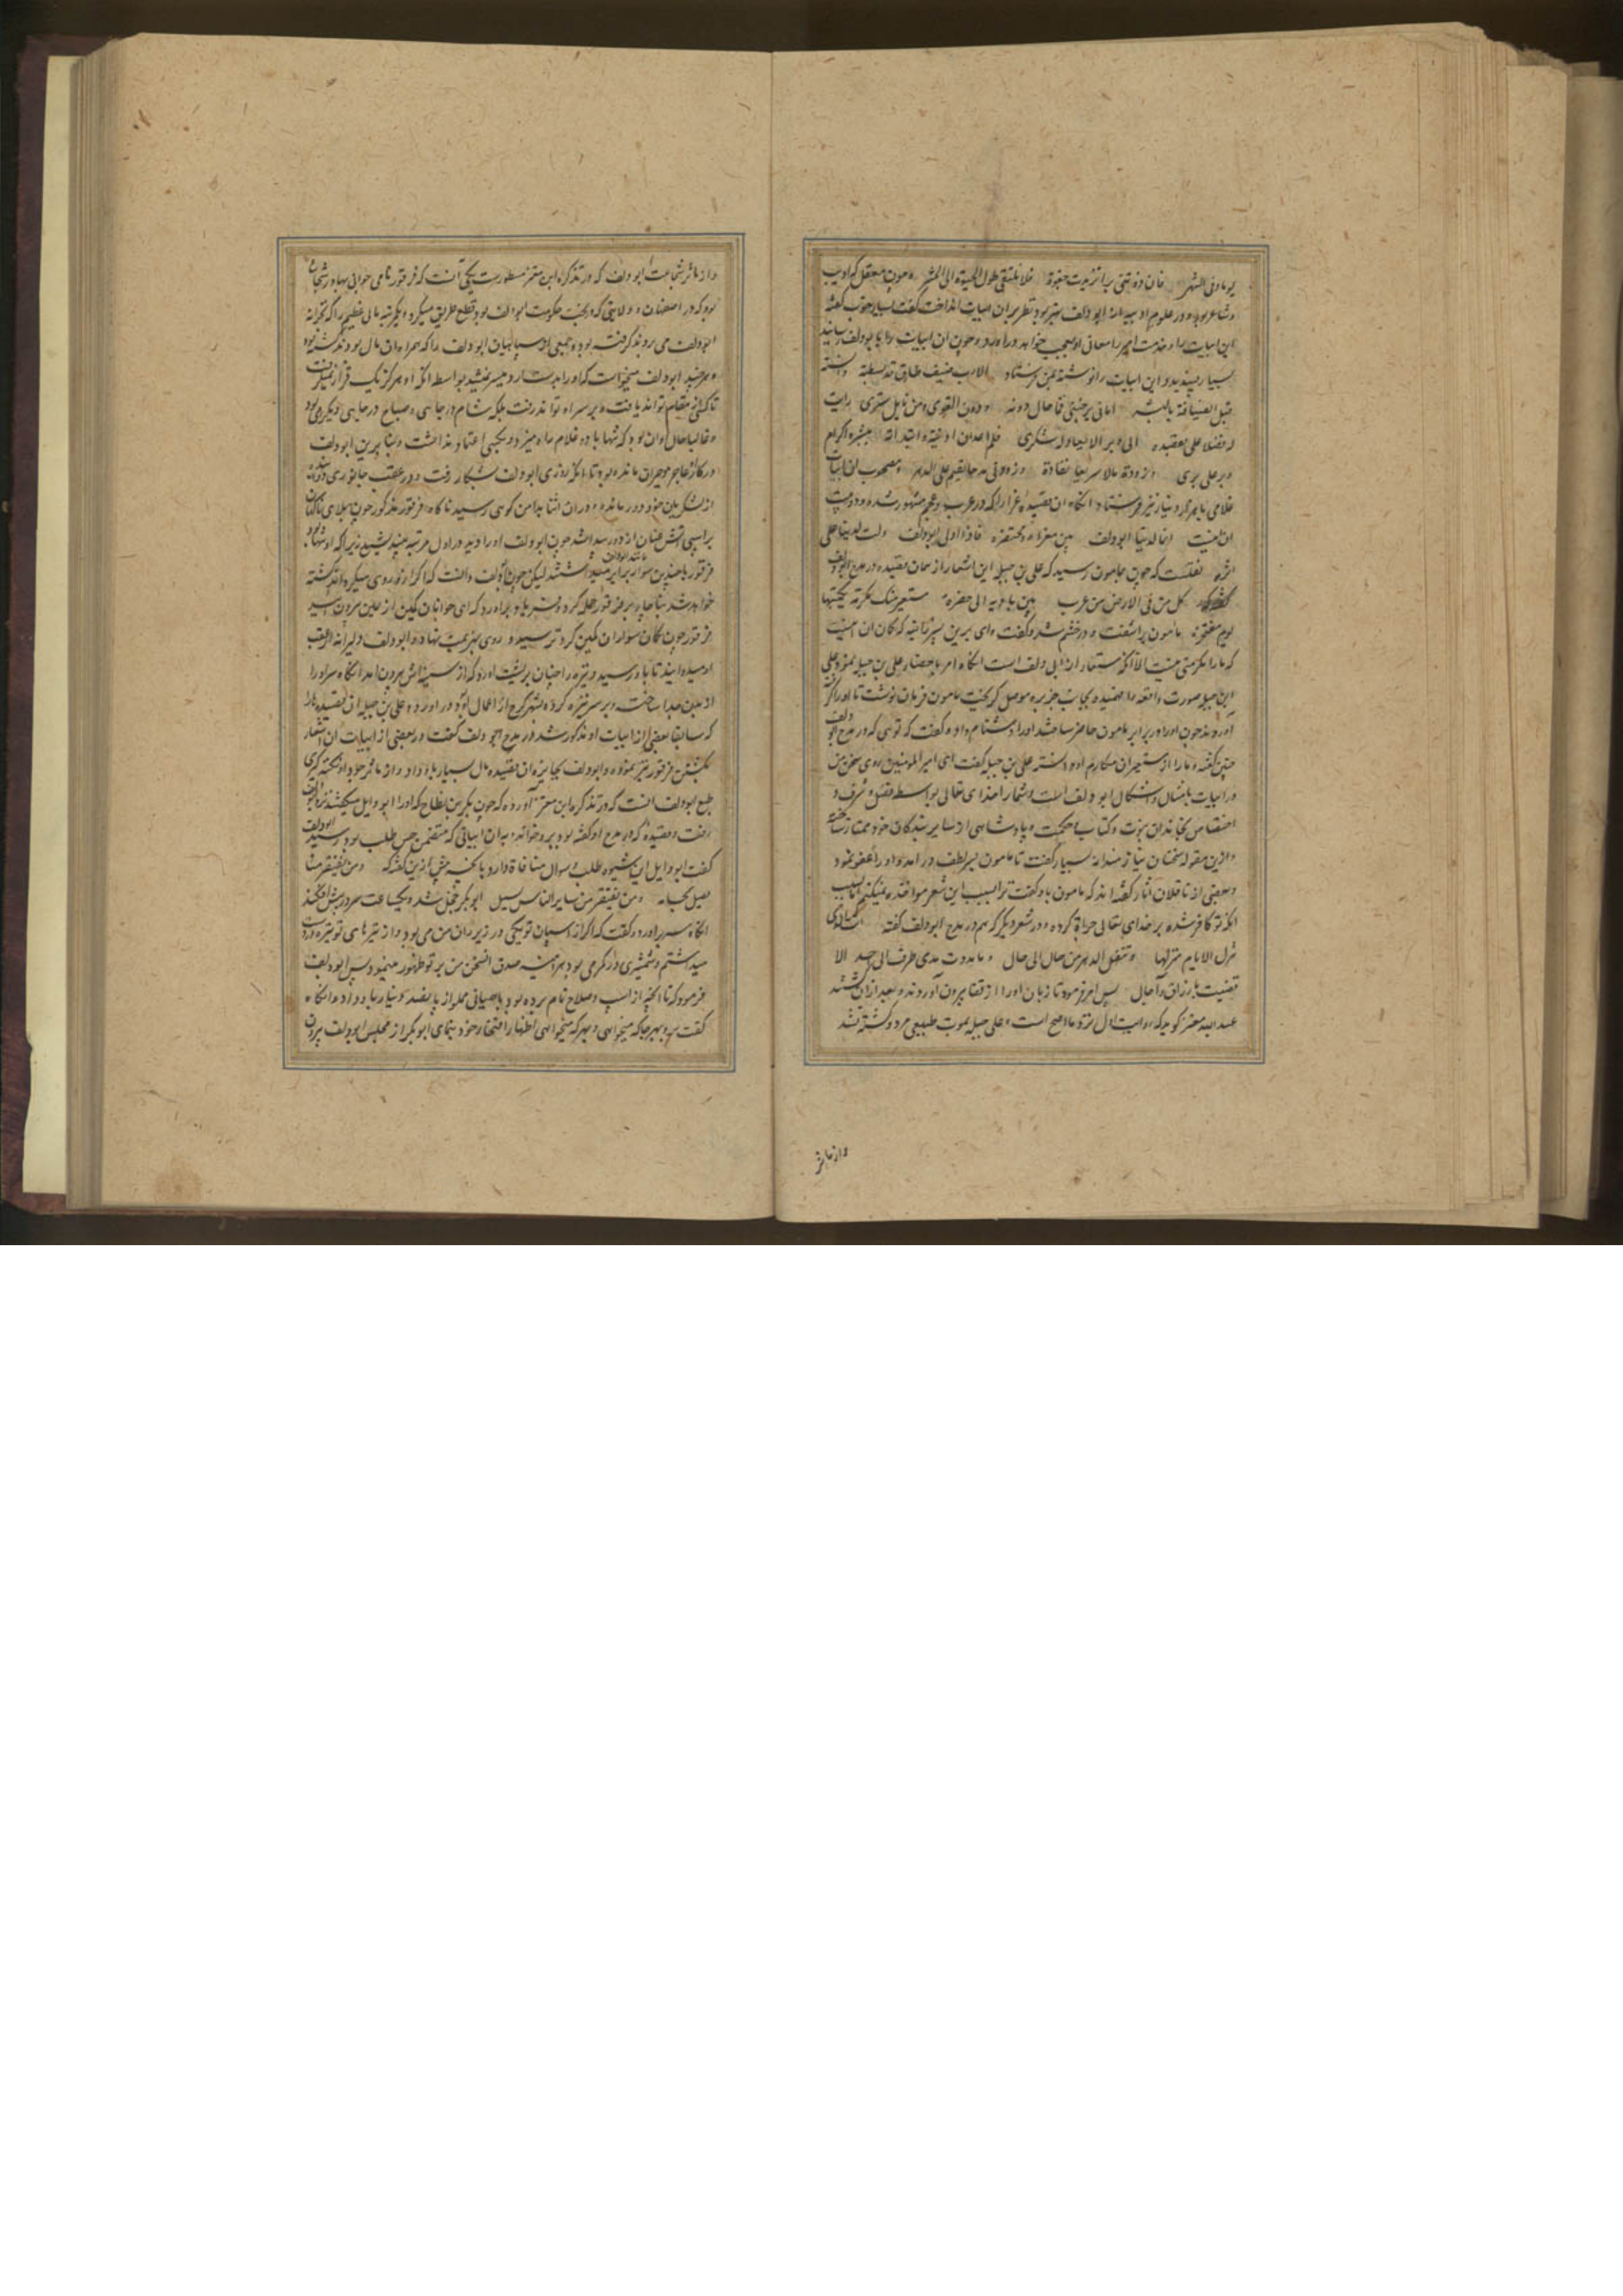 یوما و فی الشهر فان زدتنی برا تزیدت جفوة فلا نلتقی طول الحیوة الی الحشر و چون معقل که ادیب
و شاعر بود و در علوم ادبیه استاد ابو دلف نیز بود نظر بران ابیات انداخت گفت بسیار خوب گفته
این ابیات را و خدمت امیر را معانی او معجب خواهد درآورد و چون آن ابیات را با ابودلف رسانید
بسیار پسندید و این ابیات را نوشته بمن فرستاد الا رب ضیف طارق قد بسطته و آنسته
قبل الضیافة بالبشر اتانی یرجینی فما حال دونه و دون القری و من نایل ستری رایت
له فضلا علی بقصده الی و برا لا یعادله شکری فلم اعد ان ادنیته و ابتدأته ببشر و اکرام
و بر علی بری و زودته مالا سریعا نفاده و زودنی مدحا یقیم علی الدهر و مصحوب این ابیات
غلامی با هزار دینار نیز فرستاد آنگاه آن قصیده غرا را که در عرب و عجم مشهور شده و دو بیت
آن اینست انما الدنیا ابو دلف بین مغزاه و محتضره فاذا ولی ابو دلف ولت الدنیا علی
اثره نقلست که چون بمامون رسید که علی بن جبله این اشعار از همان قصیده در مدح ابو دلف
گفته که کل من فی الارض من عرب بین بادیه الی حضره مستعیر منک مکرمة یکتسیها
یوم مفتخره مامون برآشفت و در خشم شد و گفت وای برین پسر زانیه که گمان آن اینست
که ما را مکرمتی نیست الا آنکه مستعار از ابی دلف است آنگاه امر باحضار علی بن جبله نمود علی
ابن جبله صورت واقعه را فهمیده بجانب جزیره موصل گریخت مامون فرمان نوشت تا او را گرفته
آوردند چون او را در برابر مامون حاضر ساختند او را دشنام داد و گفت که توئی که در مدح ابو دلف
چنین گفته و ما را از مستعیران مکارم او دانسته علی بن جبله گفت ای امیر المؤمنین روی سخن من
در ابیات با امثال و اشکال ابو دلف است و شما را خدای تعالی بواسطه فضل و شرف و
اختصاص بخاندان نبوت و کتاب و حکمت و پادشاهی از سایر بندگان خود ممتاز ساخته
و ازین مقوله سخنان نیازمندانه بسیار گفت تا مامون بر سر لطف درآمد و او را عفو نمود
و بعضی از ناقلان آثار گفته اند که مامون باو گفت ترا بسبب این شعر مواخذه نمیکنم اما بسبب
آنکه تو کافر شده بر خدای تعالی جرأة کرده و در شعر دیگر که هم در مدح ابو دلف گفته انت الذی
تنزل الایام منزلها و تنقل الدهر من حال الی حال و ما مددت مدی طرف الی احد الا
قضیت بارزاق و آجال پس امر فرمود تا زبان او را از قفا بیرون آوردند و بعد از آن کشتند
عبد الله معتز گوید که روایت اول نزد ما اصح است و علی جبله بموت طبیعی مرد و کشته نشد
و از مآثر
و از مآثر شجاعت ابو دلف که در تذکره ابن معتز مسطورست یکی آنست که قرقور نامی جوانی بهادر شجاع
بود که در اصفهان و ولایتی که در تحت حکومت ابو دلف بود قطع طریق میکرد و یکمرتبه مالی عظیم را که بخزانه
ابو دلف می بردند گرفته بود و جمعی از سپاهیان ابو دلف را که همراه آن مال بودند کشته بود
و هر چند ابو دلف میخواست که او را بدست آرد میسر نمیشد بواسطه آنکه او هرگز یک قرار نمیگرفت
تا کسی از مقام تواند یافت و بر سر او تواند رفت بلکه شام در جایی و صباح در جایی دیگر می بود
و غالبا حال او آن بود که تنها با دو غلام راه میزد و بکسی اعتماد نداشت و بنا برین ابو دلف
در کار او عاجز و حیران مانده بود تا آنکه روزی ابو دلف بشکار رفت و در عقب جانوری دوانده
از لشکریان خود دور مانده و در آن اثنا بدامن کوهی رسید ناگاه قرقور مذکور چون بلای ناگهان
بر اسپی آتش عنان از دور پیدا شد چون ابو دلف او را دید در اول مرتبه ترسید زیرا که او تنها بود
قرقور با چندین سوار برابر مانند ابو دلف میداشتند لیکن چون ابو دلف دانست که اگر از او روی میگرداند کشته
خواهد شد ناچار بر قرقور حمله کرده و فریاد برآورد که ای جوانان کمین از یمین بیرون آیید
قرقور چون گمان سواران کمین کرد ترسید و روی بهزیمت نهاد و ابو دلف دلیرانه از عقب
او میدوانید تا باو رسید و نیزه را چنان بر پشت او زد که از سینه اش بیرون آمد آنگاه سر او را
از بدن جدا ساخت و بر سر نیزه کرده بشهر کرج از اعمال او بود درآورد و علی بن جبله آن قصیده را
که سابقا بعضی از ابیات او مذکور شد در مدح ابو دلف گفت و در بعضی از ابیات آن اشعار
بکشتن قرقور نیز نموده و ابو دلف بجایزه آن قصیده مال بسیار باو داد و از مآثر جود او نکته گیری
طبع ابو دلف آنست که در تذکره ابن معتز آورده که چون بکر بن نطاح که او را ابو وایل میگفتند نزد ابو دلف
رفت و قصیده که در مدح او گفته بود برو خواند و بدان ابیاتی که متضمن حسن طلب بود رسید ابو دلف
گفت ابو وایل این شیوه طلب و سوال منافاة دارد با آنچه پیش ازین گفته که و من یفتقر منا
یعش بحسامه و من یفتقر من سایر الناس یسل ابو بکر خجل شد و یکساعت سر در پیش افکند
آنگاه سر برآورد و گفت که اگر از اسپان تو یکی در زیر ران من می بود و از نیزه های تو نیزه در دست
میداشتم و شمشیری در کمر می بود هر آینه صدق سخن من بر تو ظهور مینمود پس ابو دلف
فرمود که تا آنچه از اسپ و سلاح نام برده بود با همیانی مملو از پانصد دینار باو داد و آنگاه
گفت برو بهر جا که میخواهی و بهر که میخواهی اظهار افتخار خود بنمای ابو بکر از مجلس ابو دلف بیرون